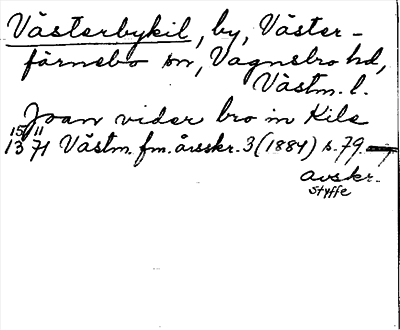 Västerbykil, by, Väster-
färnebo sn, Vagnsbro hd,
Västm. l.
Joan vider bro in Kils
15/11
1371 Västm. fm. årsskr. 3 (1884) s. 79.
avskr.
Styffe